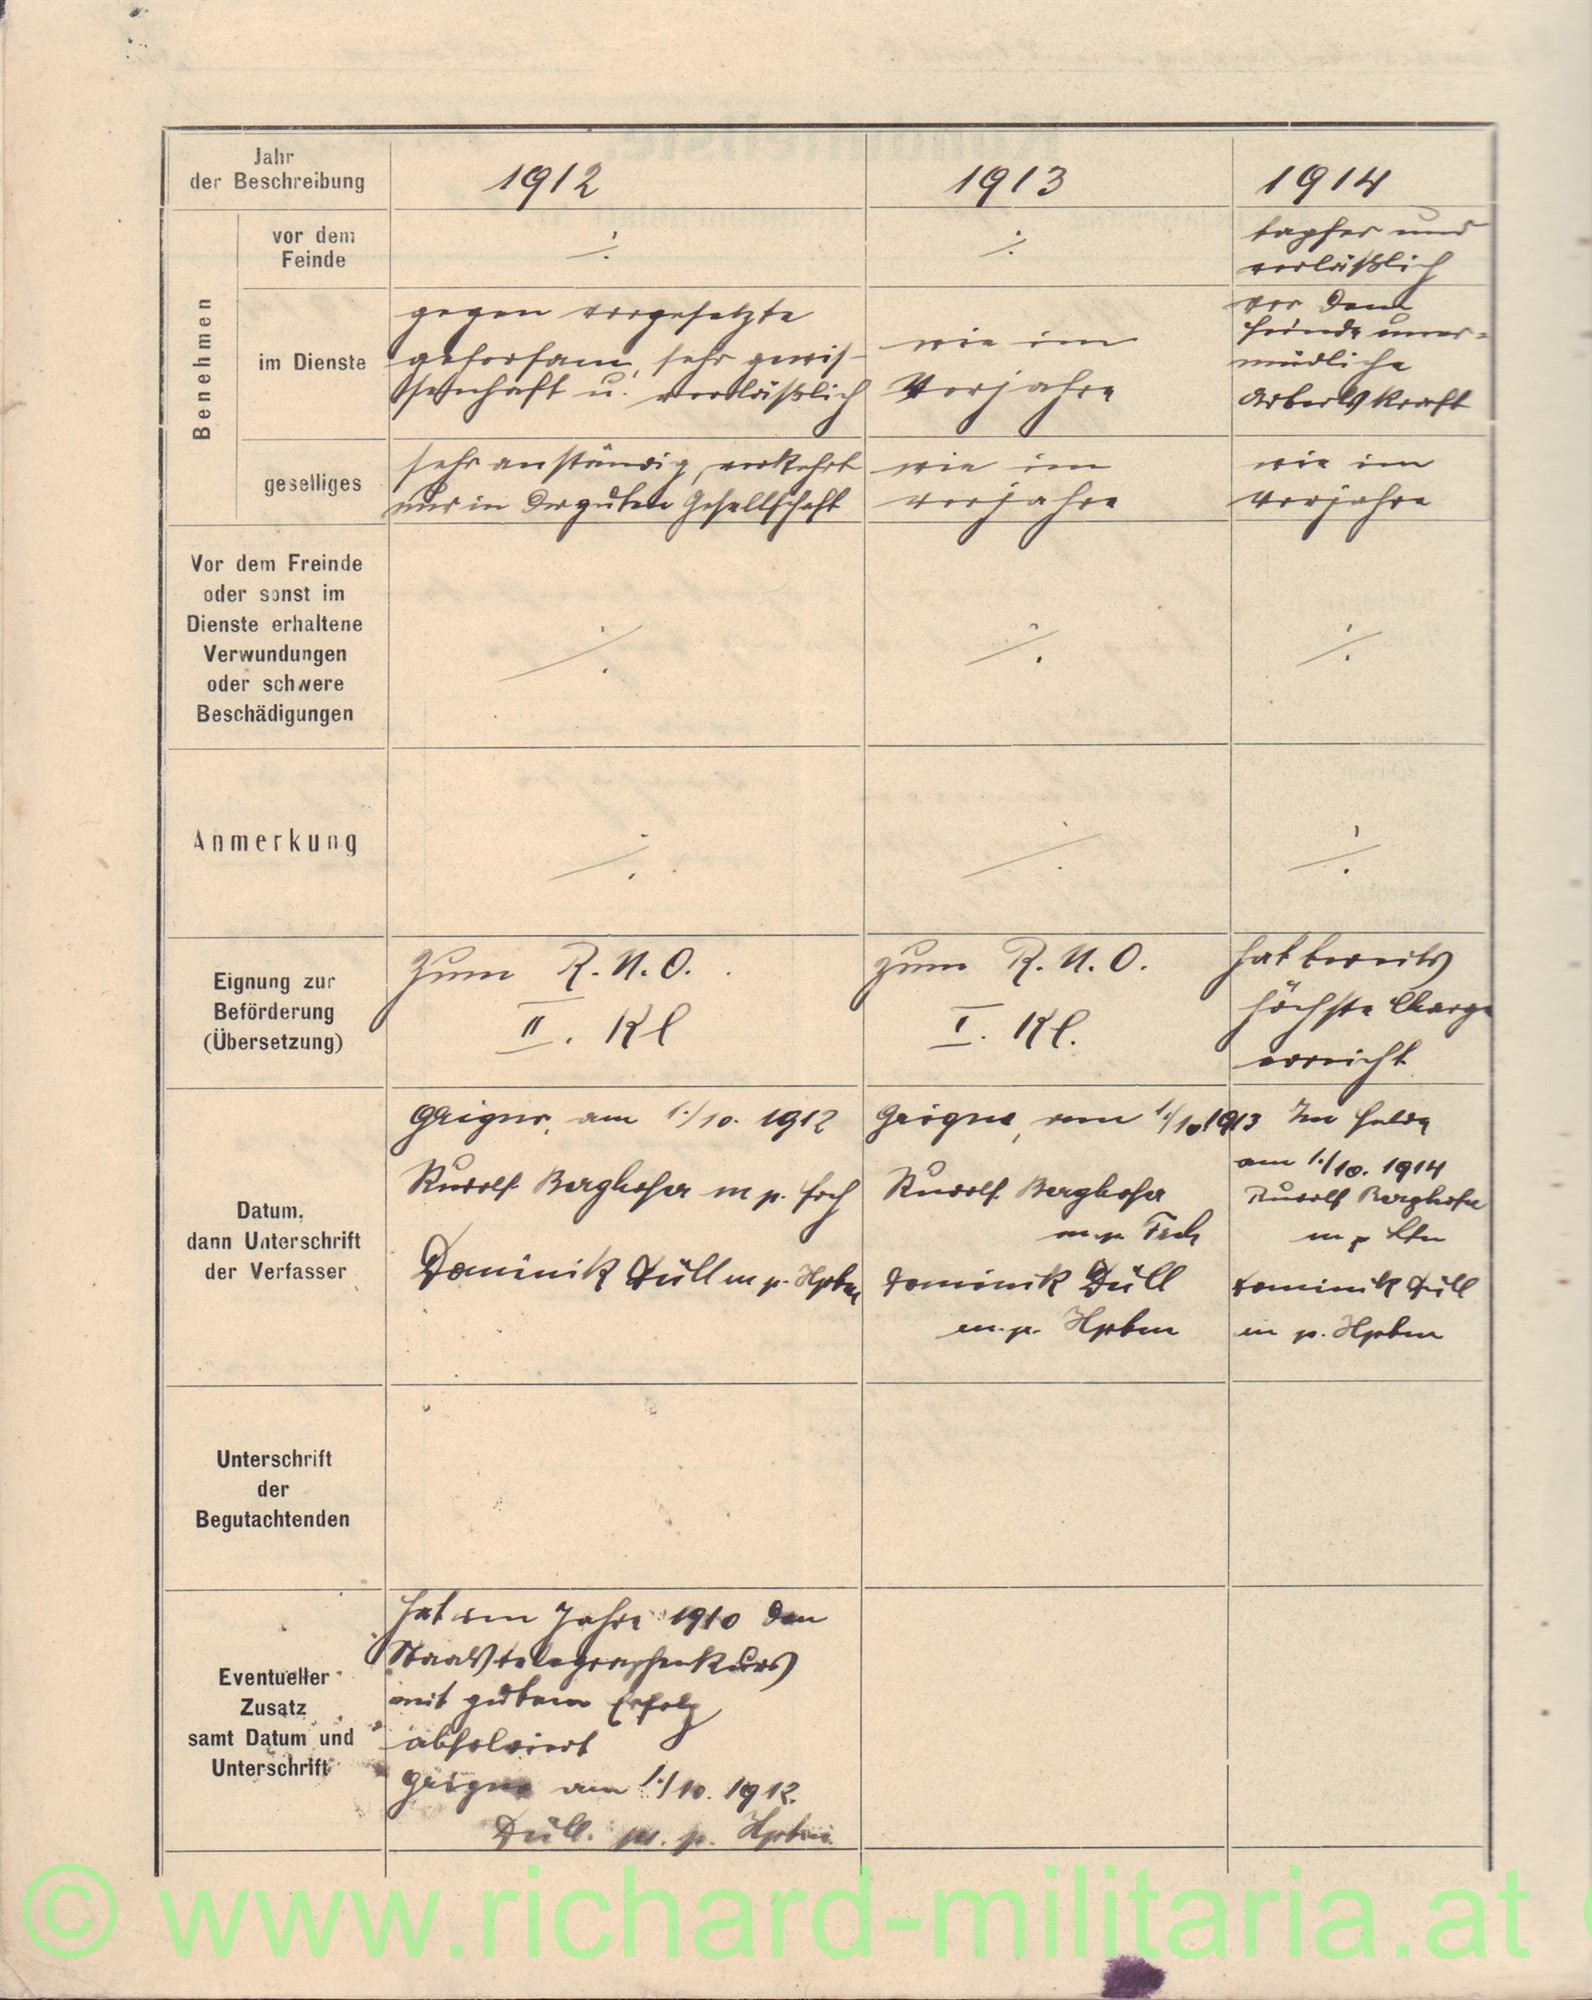 Jahr
der Beschreibung
1912
1913
1914
Benehmen
vor dem
Feinde
./.
./.
tapfer und
verläßlich
im Dienste
gegen vorgesetzte
gehorsam, sehr gewis-
senhaft u. verläßlich
wie im
Vorjahre
vor dem
Feinde uner-
müdliche
Arbeitskraft
geselliges
sehr anständig, verkehrt
nur in der guten Gesellschaft
wie im
vorjahre
wie im
vorjahre
Vor dem Freinde
oder sonst im
Dienste erhaltene
Verwundungen
oder schwere
Beschädigungen
./.
./.
./.
Anmerkung
./.
./.
./.
Eignung zur
Beförderung
(Übersetzung)
zum R. U. O.
II. Kl
zum R. U. O.
I. Kl.
hat bereits
höchste Charge
erreicht
Datum,
dann Unterschrift
der Verfasser
am 1./10. 1912
Rudolf Berghofer m p.
Dominik Düll m p. Hptm
am 1./10 1913
Rudolf Berghofer
m. p.
Dominik Düll
m. p. Hptm
Im Felde
am 1./10. 1914
Rudolf Berghofer
m p Ltn
Dominik Düll
m p. Hptm
Unterschrift
der
Begutachtenden
Eventueller
Zusatz
samt Datum und
Unterschrift
hat im Jahre 1910 den
Staatstelegraphenkurs
mit gutem Erfolg
absolviert
am 1./10. 1912.
Düll. m. p. Hptm.
© www.richard-militaria.at ©